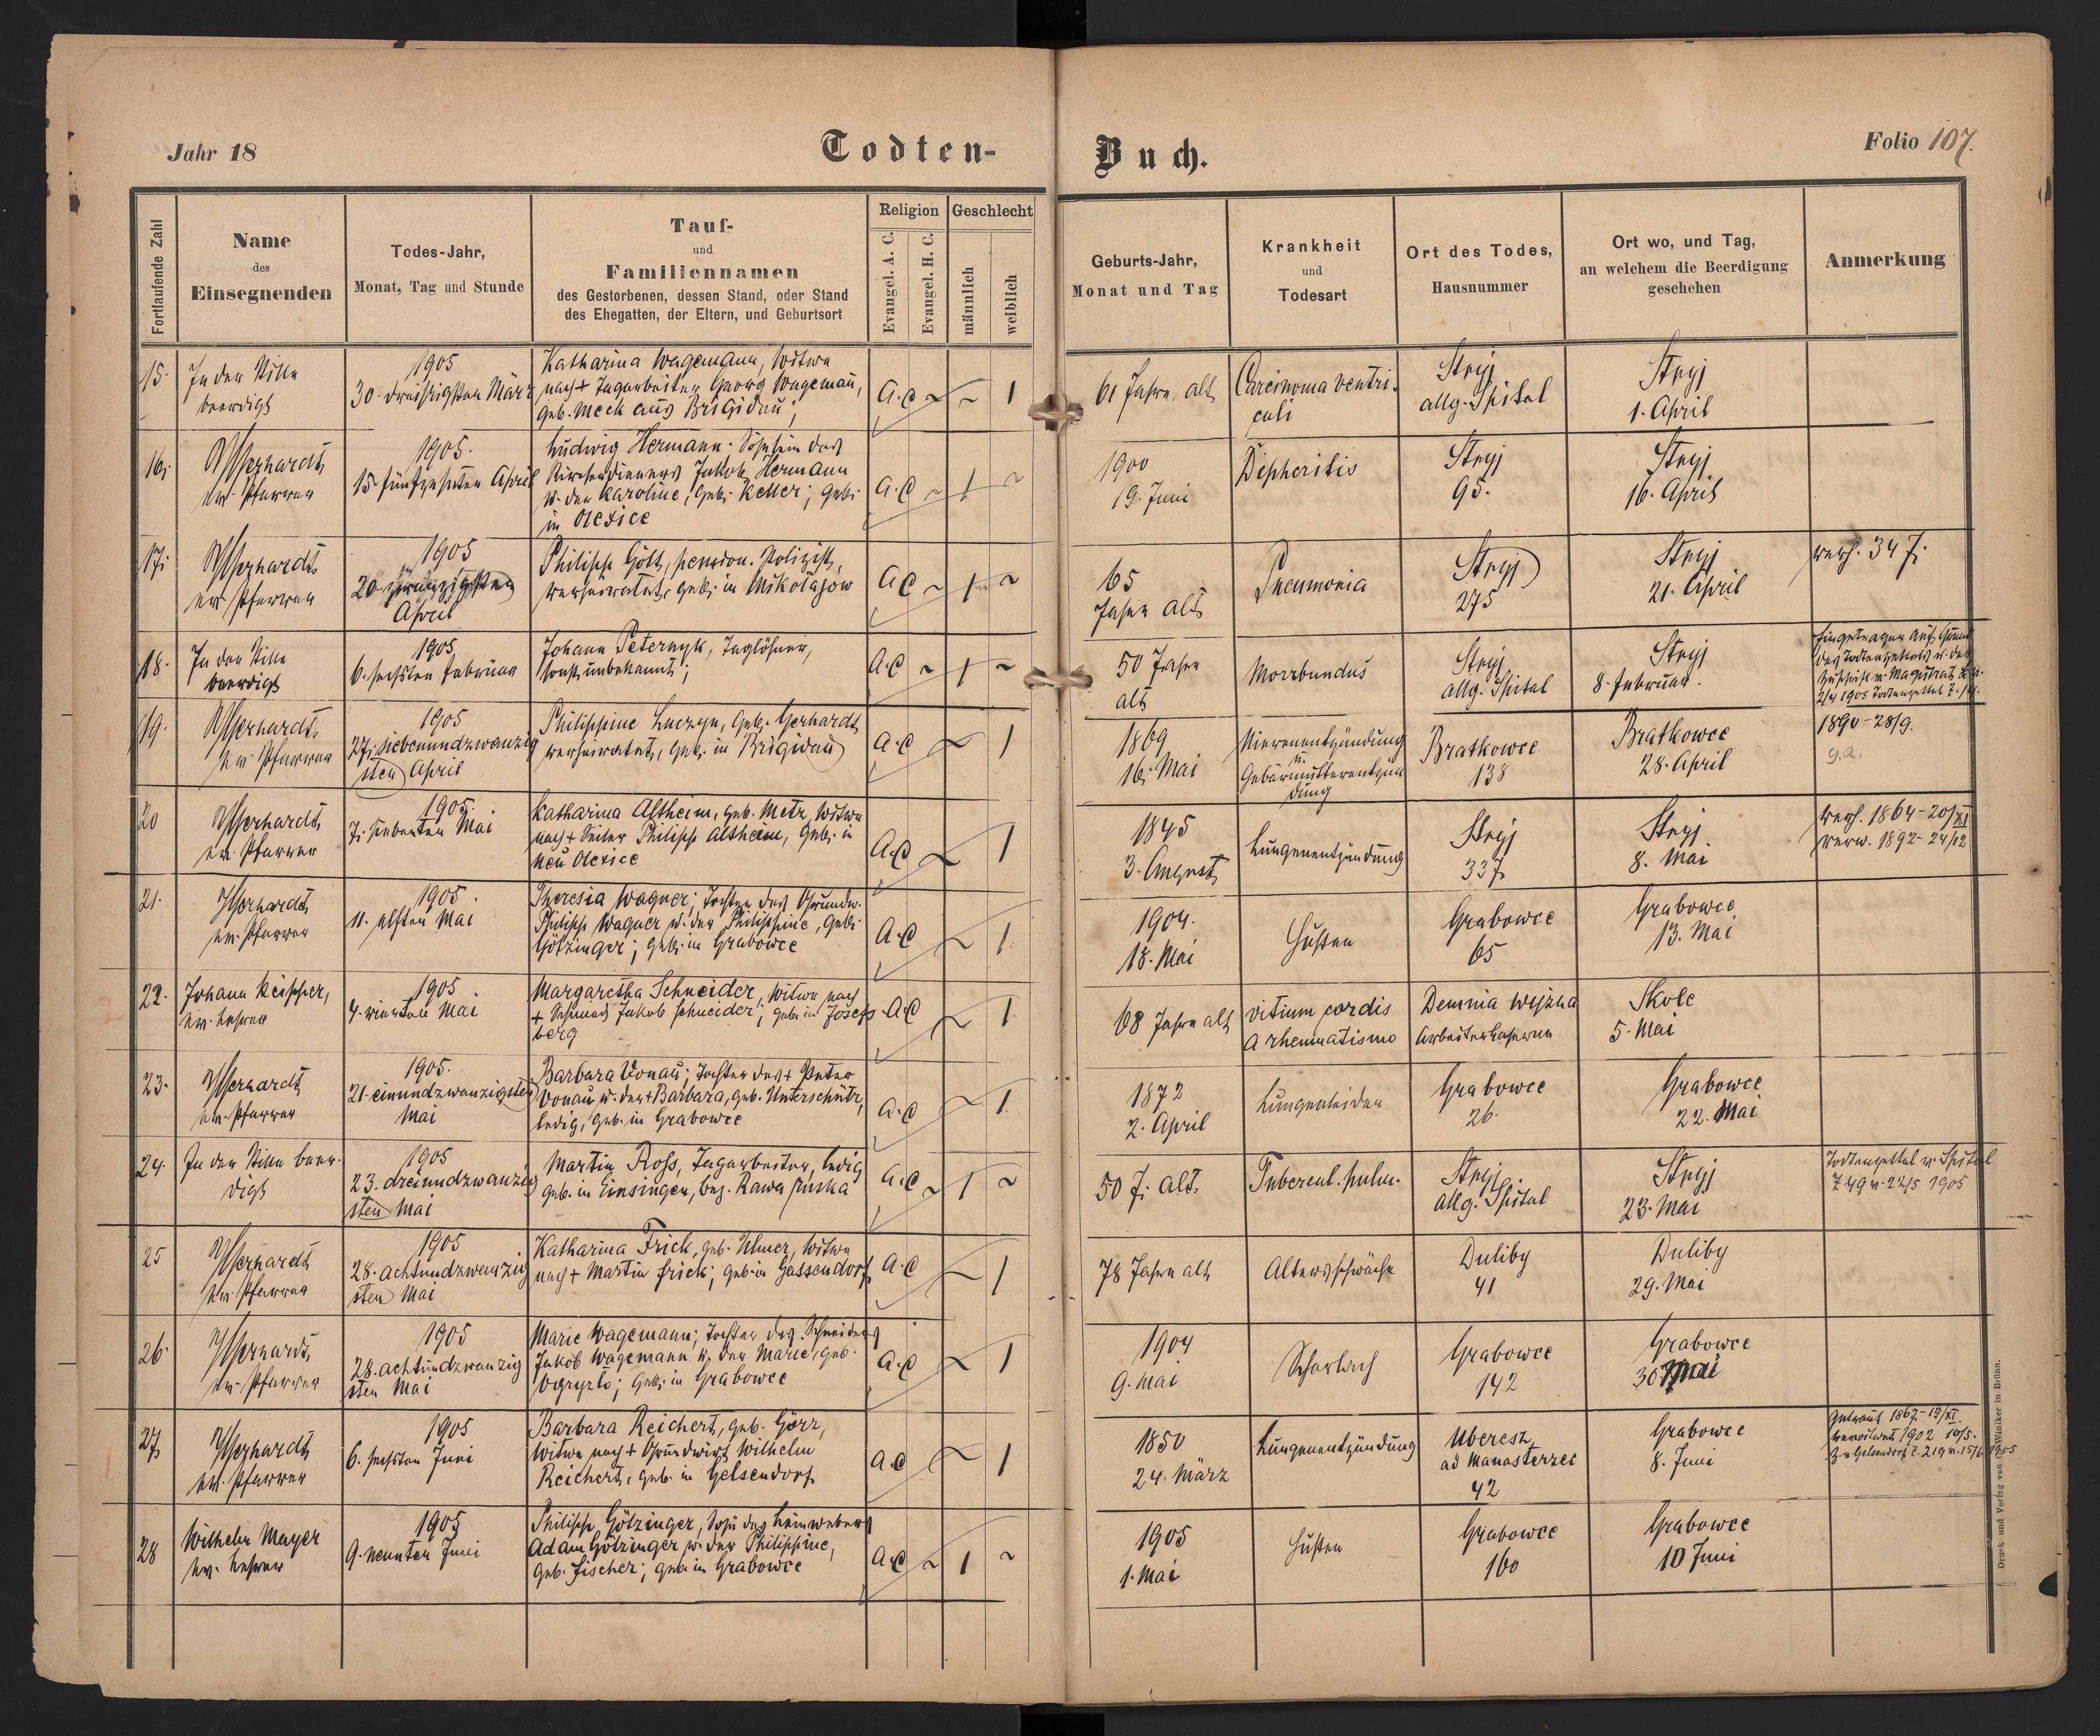 Jahr 18
Todten-
Buch.
Folio 107.
Fortlaufende Zahl
Name
des
Einsegnenden
Todes-Jahr,
Monat, Tag und Stunde
Tauf-
und
Familiennamen
des Gestorbenen, dessen Stand, oder Stand
des Ehegatten, der Eltern, und Geburtsort
Religion
Evangel. A. C.
Evangel. H. C.
Geschlecht
männlich
weiblich
Geburts-Jahr,
Monat und Tag
Krankheit
und
Todesart
Ort des Todes,
Hausnummer
Ort wo, und Tag,
an welchem die Beerdigung
geschehen
Anmerkung
15.
In der Stille
beerdigt
1905
30. dreißigsten März
Katharina Wagemann, Witwe
nach + Tagarbeiter Georg Wagemann,
geb. Meck aus Brigidau;
A.C ~ ~ 1
61 Jahre alt
Carcinoma ventri-
culi
Stryj
allg. Spital
Stryj
1. April
16.
ev. Pfarrer
1905.
15. fünfzehnten April
Ludwig Hermann. Söhnlein des
Kirchendieners Jakob Hermann
u. der Karoline, geb. Keller; geb.
in Olexice
A.C ~ 1 ~
1900
19. Juni
Dipheritis
Stryj
95.
Stryj
16. April
17.
ev. Pfarrer
1905
20. zwanzigsten
April
Philipp Gött, pension. Polizist,
verheiratet, geb. in Mikołajow
A.C ~ 1 ~
65
Jahre alt
Pneumonia
Stryj
275
Stryj
21. April
verh. 34 J.
18.
In der Stille
beerdigt
1905
6. sechsten Februar
Johann Peternyk, Taglöhner,
sonst unbekannt;
A.C ~ 1 ~
50 Jahre
alt
Morrbundus
Stryj
allg. Spital
Stryj
8. Februar.
Eingetragen auf Grund
des Todtenzettels u. der
19.
ev. Pfarrer
1905
27. siebenundzwanzig
sten April
Philippine Luczyn, geb. Gerhardt
verheiratet, geb. in Brigidau
A.C ~ 1
1869
16. Mai
Nierenentzündung
u.
Gebärmutterentzün
dung
Bratkowce
138
Bratkowce
28. April
1890-28/9.
g.a.
20
ev. Pfarrer
1905.
7. siebenten Mai
Katharina Altheim, geb. Metz, Witwe
nach + Seiler Philipp Altheim, geb. in
Neu Olexice
A.C ~ 1
1845
3. August
Lungenentzündung
Stryj
337
Stryj
8. Mai
verh. 1864-20/XI
verw. 1892-24/12
21.
ev. Pfarrer
1905.
11. elften Mai
Theresia Wagner; Tochter des Grundw.
Philipp Wagner u. der Philippine, geb.
Götzinger; geb. in Grabowce
A.C ~ 1
1904.
18. Mai
Husten
Grabowce
65
Grabowce
13. Mai
22.
Johann Keipper,
ev. Lehrer
1905.
4. vierten Mai
Margaretha Schneider, Witwe nach
+ Jakob Schneider; geb. in Josefs
berg
A.C ~ 1
68 Jahre alt
vitium cordis
a rheumatismo
Demnia wyżna
Arbeiterkaserne
Skole
5. Mai
23.
ev. Pfarrer
1905.
21. einundzwanzigsten
Mai
Barbara Donau; Tochter des + Peter
Donau u. der + Barbara, geb. Unterschütz,
ledig, geb. in Grabowce
A.C ~ 1
1872
2. April
Lungenleiden
Grabowce
26.
Grabowce
22. Mai
24.
In der Stille beer-
digt
1905
23. dreiundzwanzig
sten Mai
Martin Roß, Tagarbeiter, ledig
geb. in Einsingen, bez. Rawa ruska
A.C ~ 1 ~
50 J. alt.
Tubercul. pulm.
Stryj
allg. Spital
Stryj
23. Mai
Todtenzettel v. Spital
Z 49 v. 22/5 1905
25
ev. Pfarrer
1905
28. achtundzwanzig
sten Mai
Katharina Frick, geb. Ulmer, Witwe
nach + Martin Frick; geb. in Gassendorf
A.C ~ 1
78 Jahre alt
Altersschwäche
Duliby
41
Duliby
29. Mai
26.
ev. Pfarrer
1905
28. achtundzwanzig
sten Mai
Marie Wagemann; Tochter des Schneiders
Jakob Wagemann u. der Marie, geb.
Ogryzlo; geb. in Grabowce
A.C ~ 1
1904
9. Mai
Scharlach
Grabowce
142
Grabowce
30 Mai
27
ev. Pfarrer
1905
6. sechsten Juni
Barbara Reichert, geb. Görz,
Witwe nach + Grundwirt Wilhelm
Reichert, geb. in Gelsendorf
A.C ~ 1
1850
24. März
Lungenentzündung
Uberesz
ad Manasterzec
42
Grabowce
8. Juni
getraut 1867-19/XI.
verwitwet 1902 10/5.
28
Wilhelm Mayer
ev. Lehrer
1905
9. neunten Juni
Philipp Götzinger, Sohn des Leinwebers
Adam Götzinger u. der Philippine,
geb. Fischer; geb. in Grabowce
A.C ~ 1 ~
1905
1. Mai
Husten
Grabowce
160
Grabowce
10 Juni
Druck und Verlag von C. Winiker in Brünn.